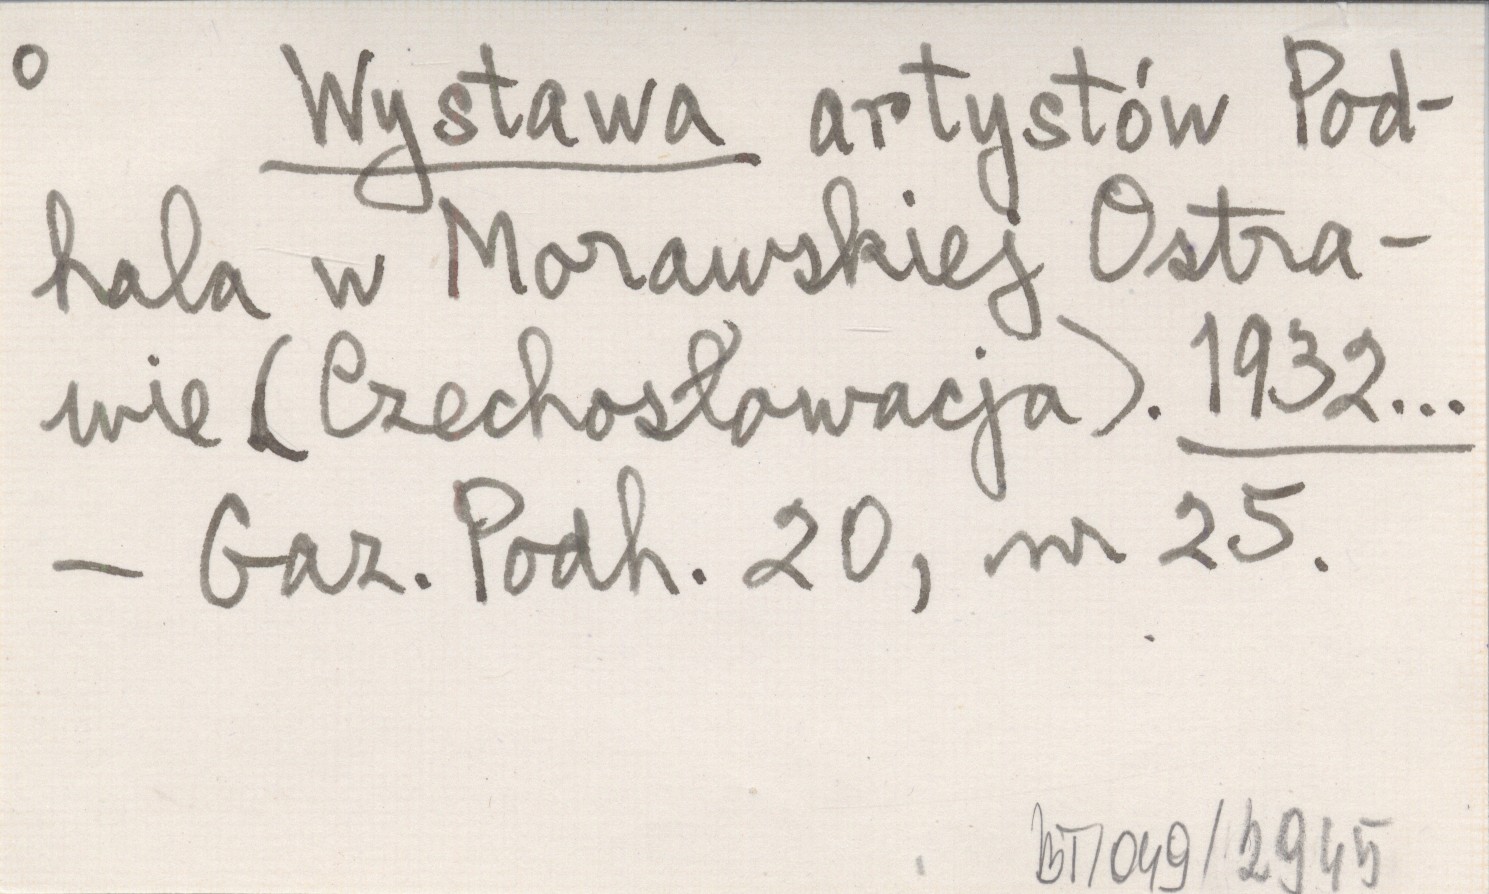 o Wystawa artystów Pod-
hala w Morawskiej Ostra-
wie (Czechosłowacja). 1932...
— Gaz. Podh. 20, nr 25.
BT/049/2945